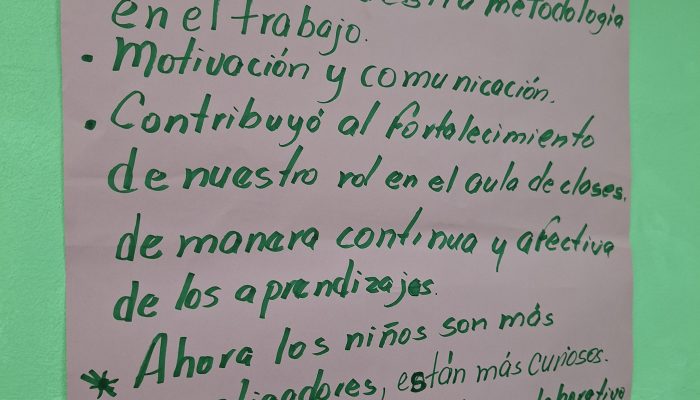 metodología
en el trabajo.
• Motivación y comunicación.
• Contribuyó al fortalecimiento
de nuestro rol en el aula de clases,
de manera continua y afectiva
de los aprendizajes.
* Ahora los niños son más
están más curiosos.